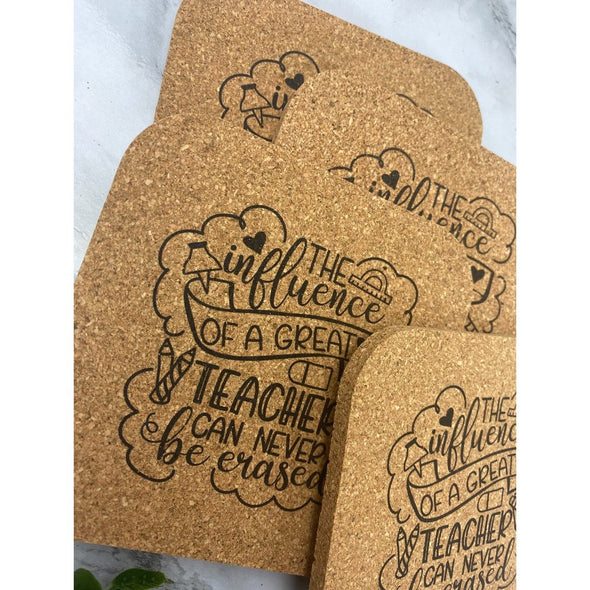 influence
THE
influence
THE
influence
OF A GREAT
TEACHER
CAN NEVER
be erased
THE
influence
OF A GREAT
TEACHER
CAN NEVER
be erased